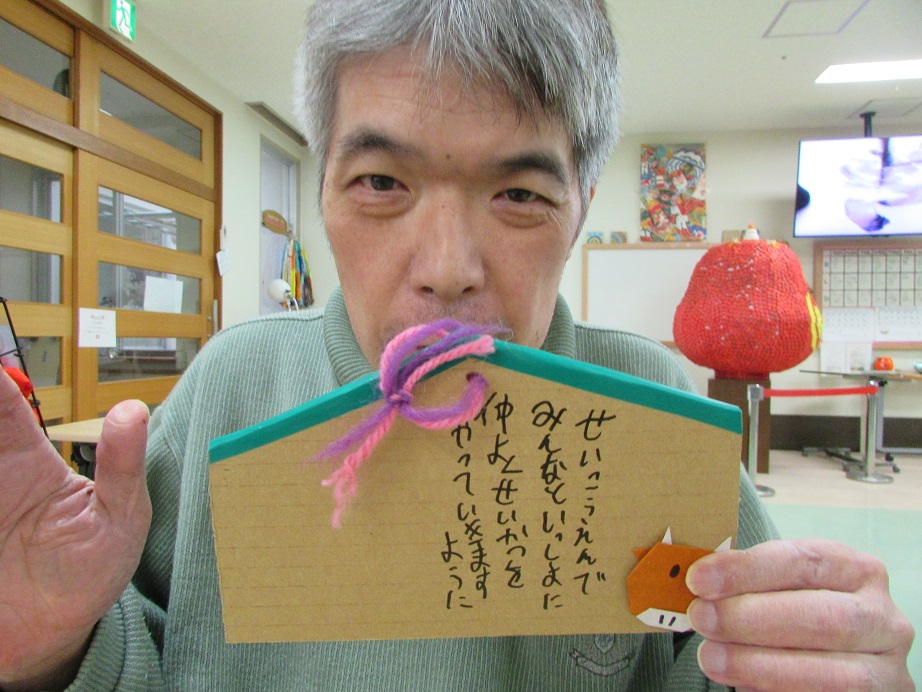 せいこうえんで
みんなといっしょに
仲よくせいかつを
やっていきます
ように